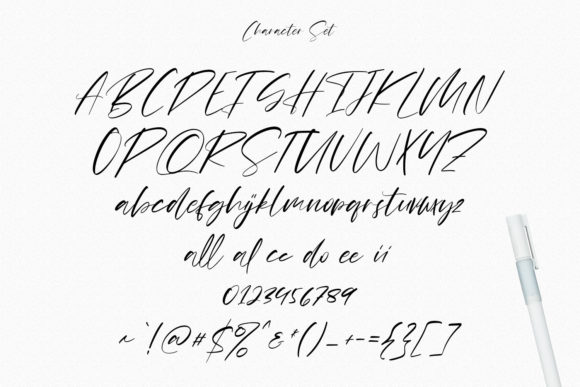 Character Set
ABCDEFGHIJKLMN
OPQRSTUVWXYZ
abcdefghijklmnopqrstuvwxyz
all al cc do ee ii
0123456789
~`!@#$%^&*()_-+={}[]